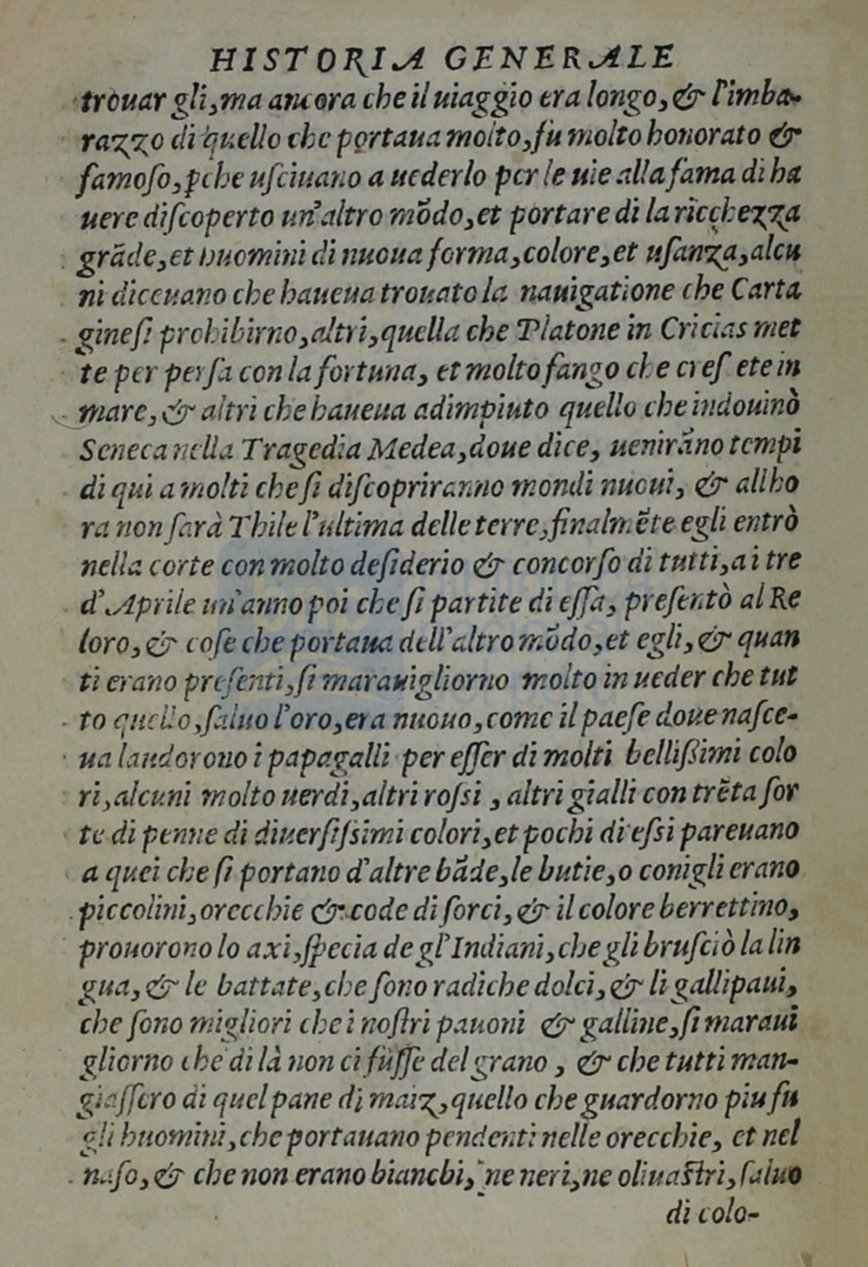 HISTORIA GENERALE
trouar gli, ma ancora che il uiaggio era longo, & l'imba-
razzo di quello che portaua molto, fù molto honorato &
famoso, pche usciuano a uederlo per le uie alla fama di ha
uere discoperto un'altro mõdo, et portare di la ricchezza
grãde, et huomini di nuoua forma, colore, et usanza, alcu
ni diceuano che haueua trouato la nauigatione che Carta
ginesi prohibirno, altri, quella che Platone in Cricias met
te per persa con la fortuna, et molto fango che cresc ete in
mare, & altri che haueua adimpiuto quello che indouinò
Seneca nella Tragedia Medea, doue dice, uenirãno tempi
di qui a molti che si discopriranno mondi nuoui, & allho
ra non sarà Thile l'ultima delle terre, finalmẽte egli entrò
nella corte con molto desiderio & concorso di tutti, a i tre
d'Aprile un'anno poi che si partite di essa, presentò al Re
loro, & cose che portaua dell'altro mõdo, et egli, & quan
ti erano presenti, si marauigliorno molto in ueder che tut
to quello, saluo l'oro, era nuouo, come il paese doue nasce-
ua laudorono i papagalli per esser di molti bellißimi colo
ri, alcuni molto uerdi, altri rossi, altri gialli con trẽta sor
te di penne di diuersissimi colori, et pochi di essi pareuano
a quei che si portano d'altre bãde, le hutie, o conigli erano
piccolini, orecchie & code di sorci, & il colore berrettino,
prouorono lo axi, specia de gl'Indiani, che gli brusciò la lin
gua, & le battate, che sono radiche dolci, & li gallipaui,
che sono migliori che i nostri pauoni & galline, si maraui
gliorno che di là non ci fusse del grano, & che tutti man-
giassero di quel pane di maiz, quello che guardorno piu fu
gli huomini, che portauano pendenti nelle orecchie, et nel
naso, & che non erano bianchi, ne neri, ne oliuastri, saluo
di colo-